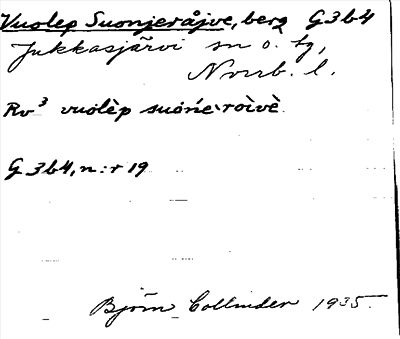 Vuolep Suonjeråjve, berg G3b4
Jukkasjärvi sn o. tg,
Norrb. l.
Rv³ vuolèp suóńe·ròivè
G 3b4, n:r 19
Björn Collinder 1935.